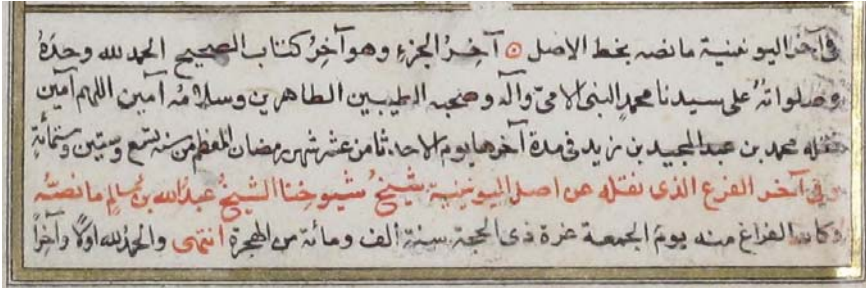 في آخر اليونينية ما نصه بخط الاصل ۞ آخِرُ الجزءِ وهو آخِرُ كتاب الصحيح الحمد لله وحدَهُ
وصلواتهُ على سيدنا محمدٍ النبى الامىّ وآله وصحبه الطيبين الطاهرين وسلامُه آمين اللهم آمين
نقله محمد بن عبد المجيد بن زيد فى مدة آخرها يوم الاحد ثامن عشر شهر رمضان المعظم من سنه تسع وستين وستمائةٍ
وفى آخر الفرع الذى نقله عن اصل اليونينية شيخُ شيوخنا الشيخُ عبدُ الله بن سالمٍ ما نصّه
وكان الفراغ منه يومَ الجمعة غرة ذى الحجة سنةِ الف ومائة من الهجرة انتهى والحمدُ لله اولًا وآخرًا